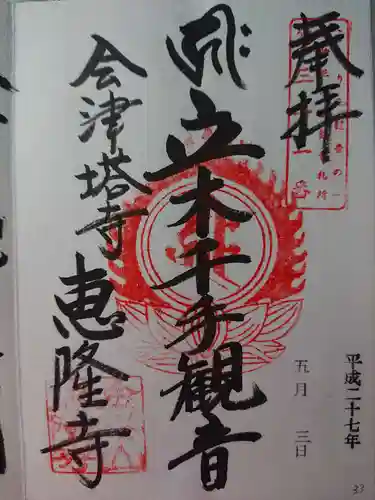 奉拝
平成二十七年
五月 三日
立木千手観音
会津塔寺
恵隆寺
33